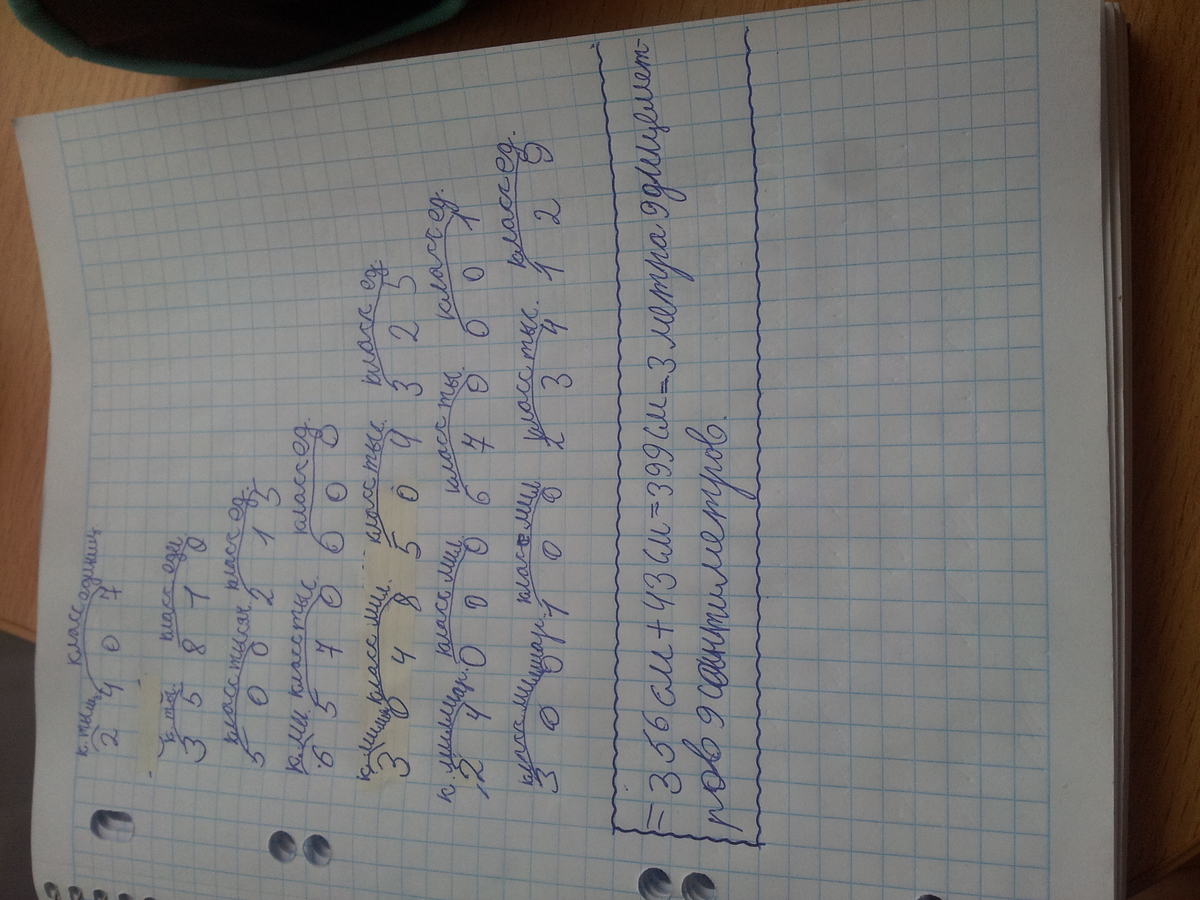 к. тыщ. класс единиц
2 4 0 7
к. тыс. класс еди
3 5 8 1 0
класс тысяч класс ед.
5 0 0 2 1 5
к. ми. класс тыс класс ед.
6 5 7 0 6 0 0
к. милли класс мил. класс тыс. класс ед.
3 0 4 8 5 0 4 3 2 5
к. миллиар. класс мил класс ты. класс ед.
2 4 0 0 0 6 7 0 0 0 1
класс миллиар. класс мил класс тыс. класс ед.
3 0 0 1 0 0 2 3 4 1 2 9
= 356 см + 43 см = 399 см = 3 метра 9 дицемет-
ров 9 сантиметров.